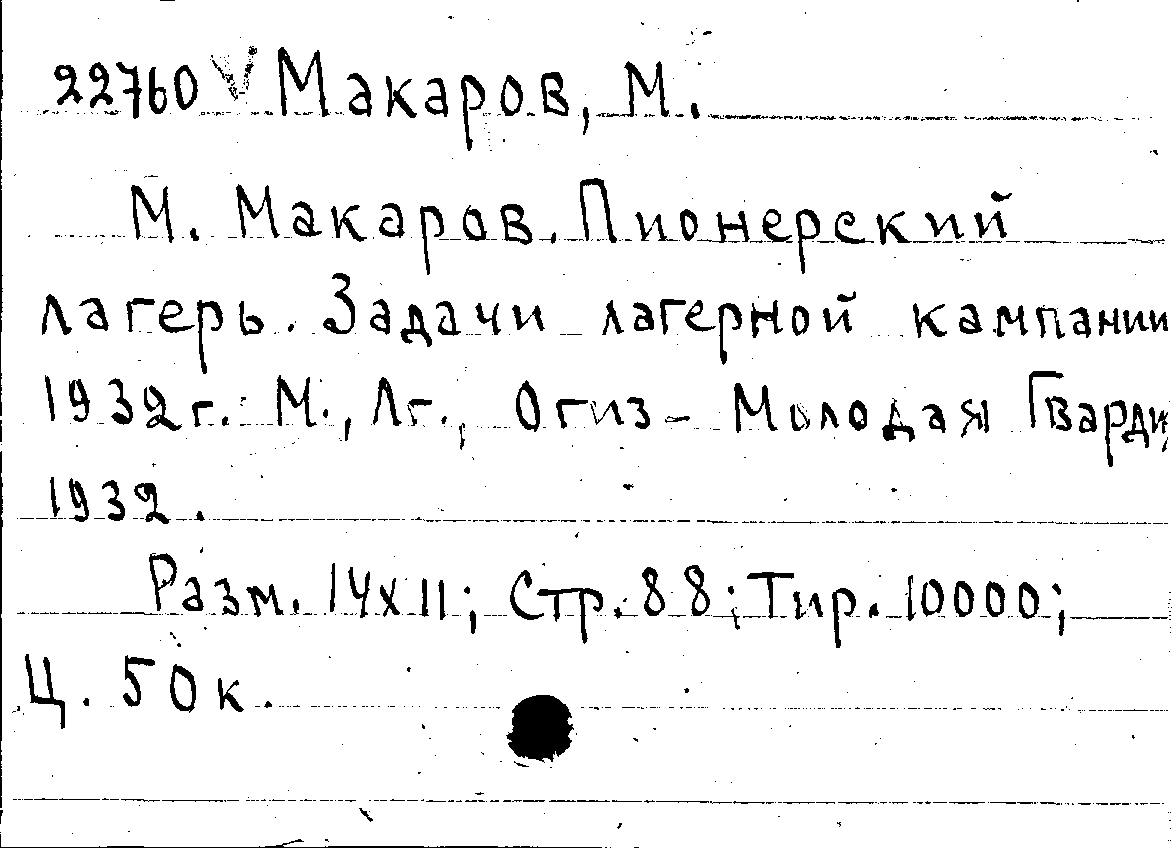 22760 V Макаров, М.
М. Макаров. Пионерский
лагерь. Задачи лагерной кампании
1932 г. М., Лг., Огиз - Молодая Гварди
1932.
Разм. 14х11; Стр. 88; Тир. 10000;
Ц. 50 к.